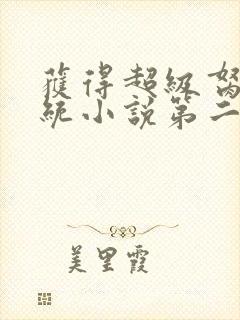 獲得超級
統小說第二
美里霞